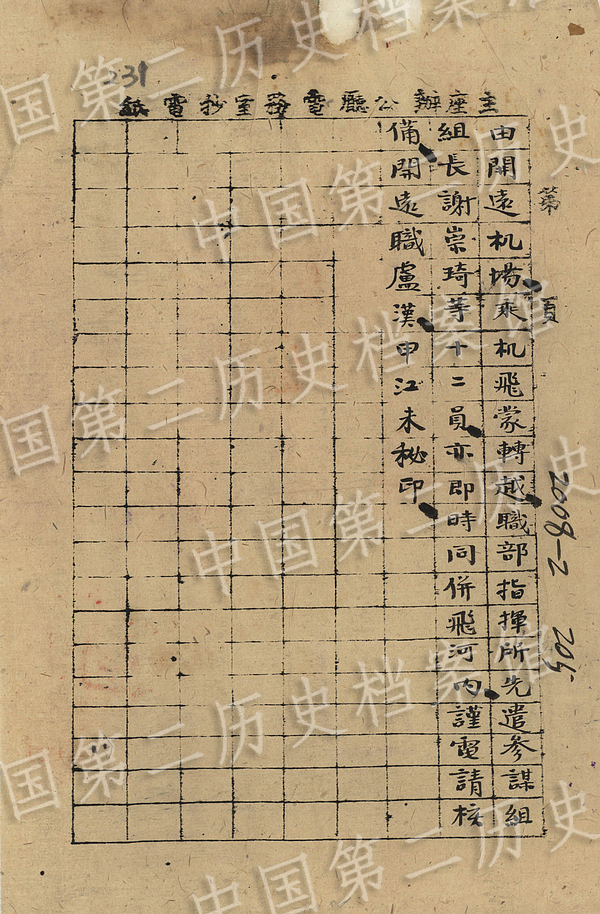 231
主座辦公廳電務室抄電紙
第 頁
由開遠机場乘机飛蒙轉越職部指揮所先遣參謀組
組長謝崇琦等十二員亦即時同併飛河内謹電請核
備開遠職盧漢申江未秘印
2008-2 205
中国第二历史档案馆